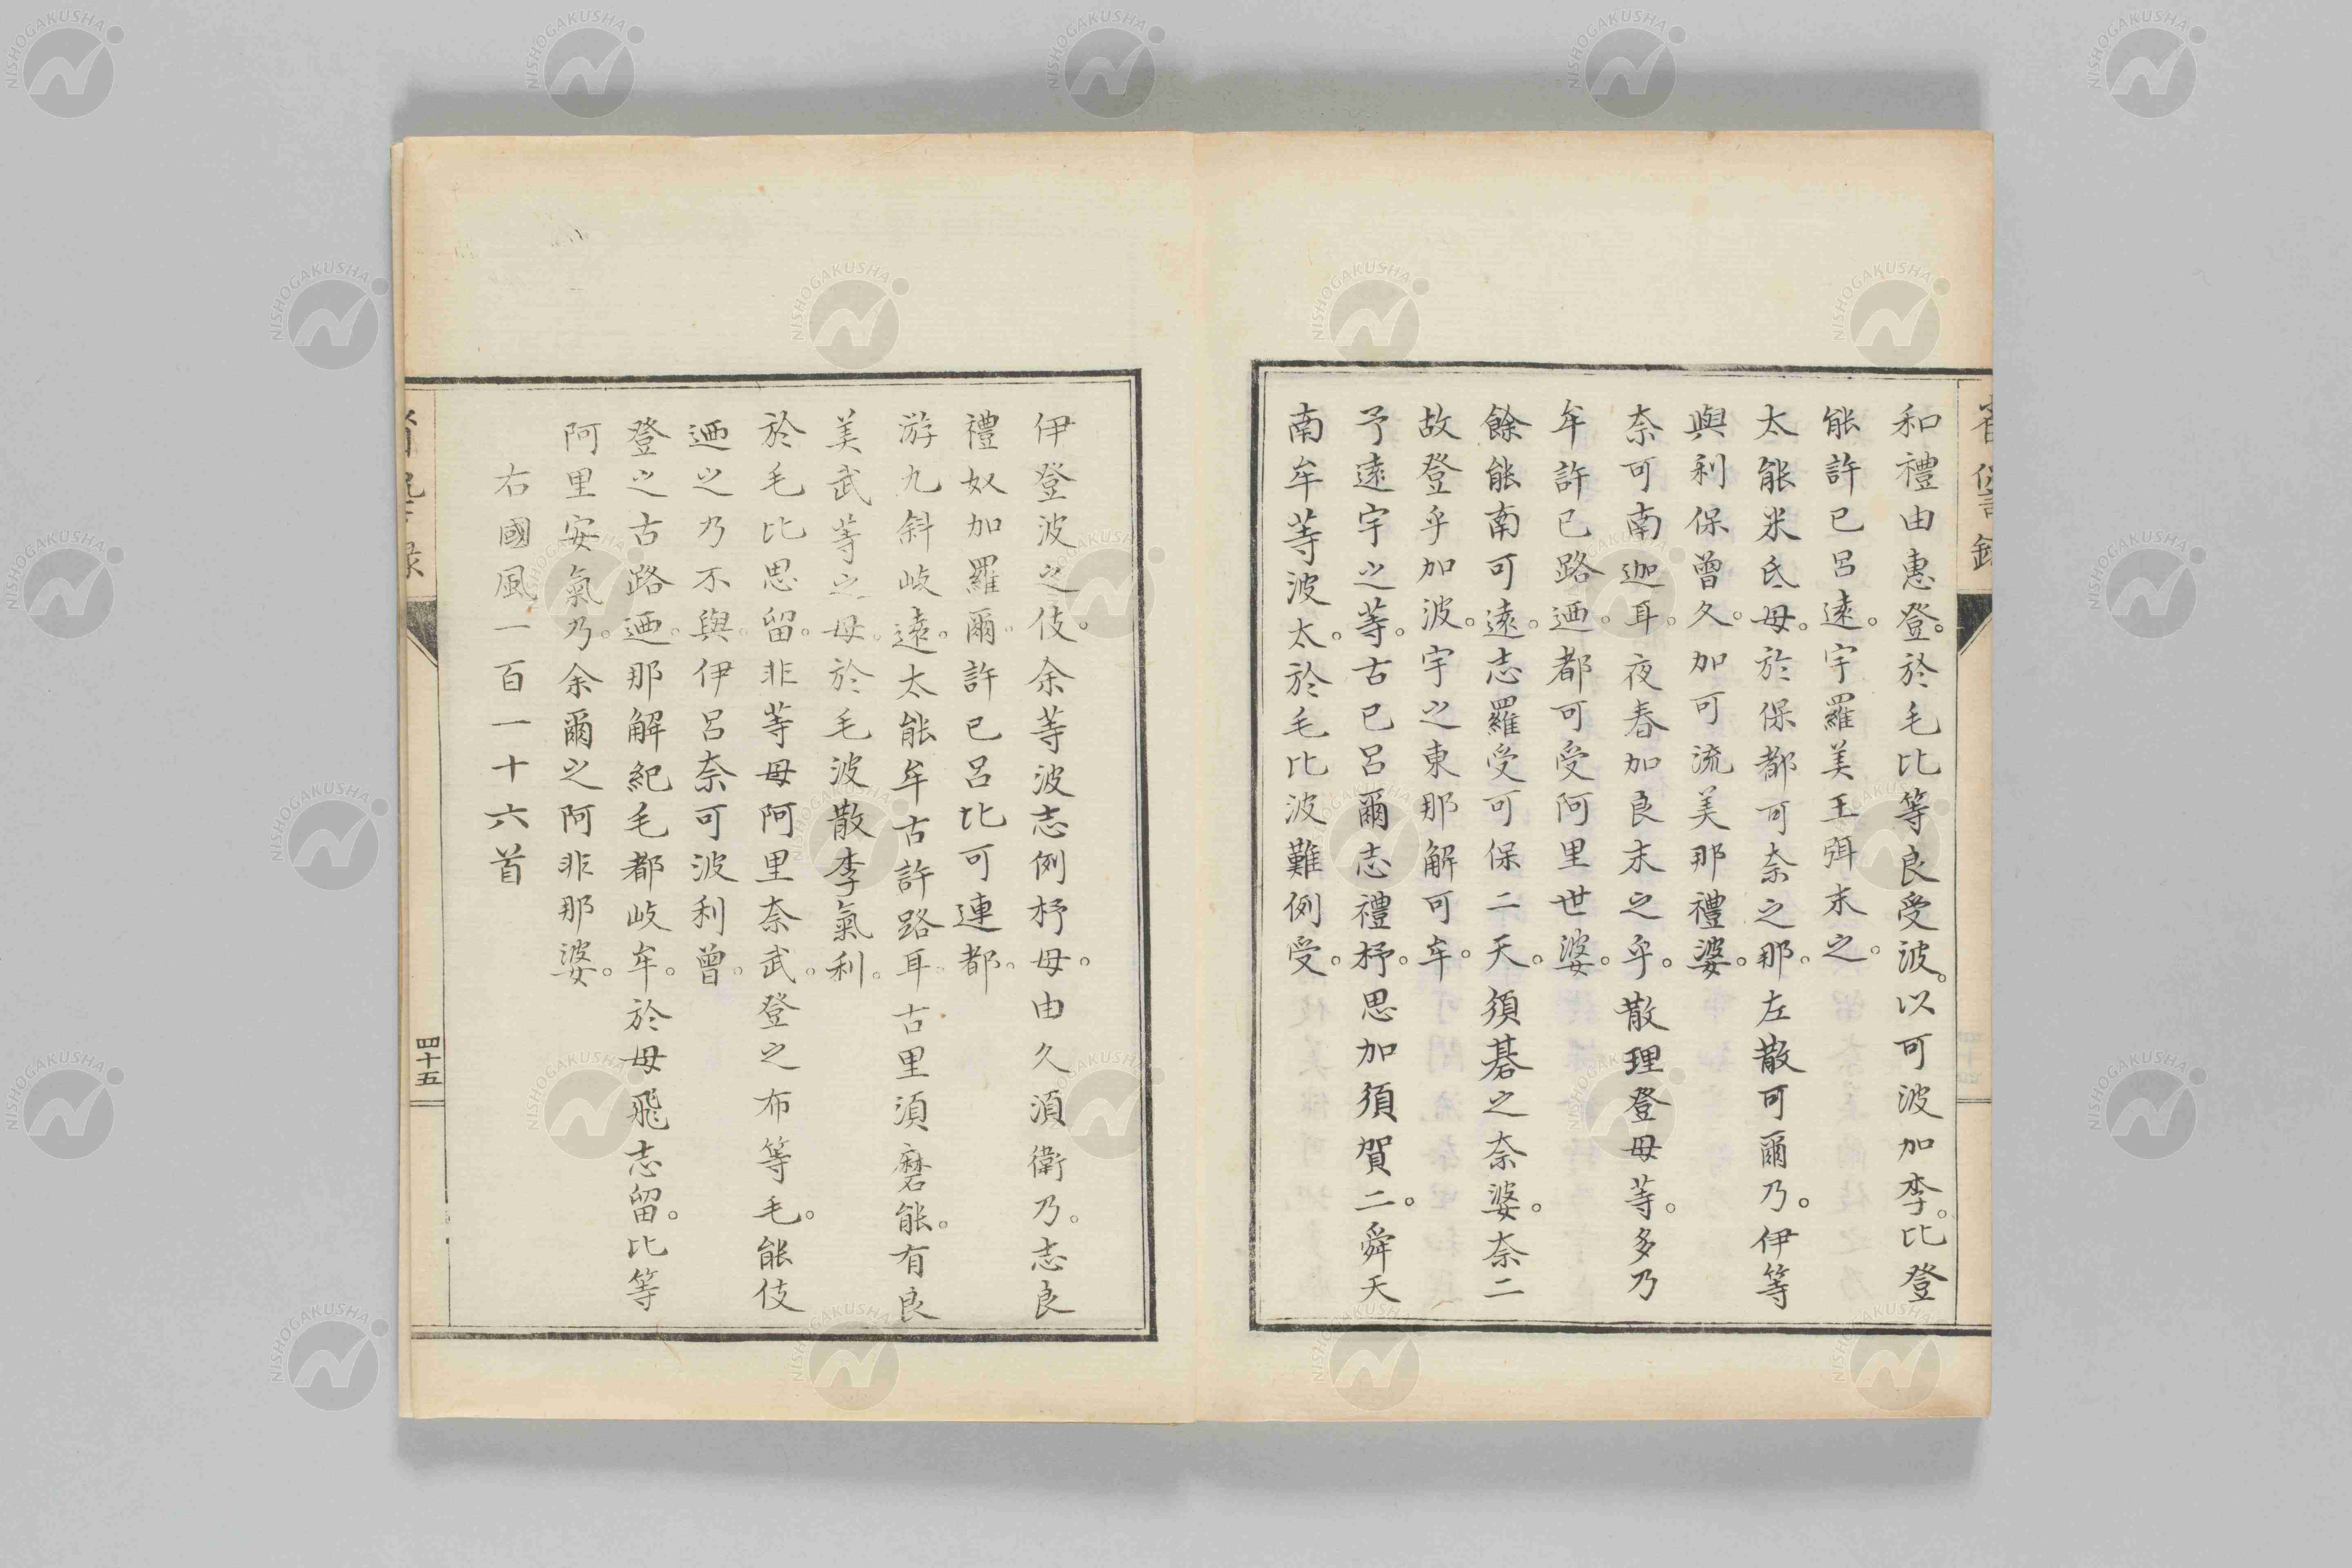 和禮由惠登。於毛比等良受波。以可波加李。比登
能許已呂遠。宇羅美王弭末之。
太能米氏母。於保都可奈之那。左散可爾乃。伊等
與利保曾久。加可流美那禮婆。
奈可南迦耳。夜春加良末之乎。散理登母等。多乃
牟許已路迺。都可受阿里世婆。
餘能南可遠。志羅受可保二天。須碁之奈婆。奈二
故登乎加波。宇之東那解可牟。
予遠宇之等。古已呂爾志禮杼。思加須賀二。舜天
南牟等波太。於毛比波難例受。
伊登波之伎。余等波志例杼母。由久須衛乃。志良
禮奴加羅爾。許已呂比可連都。
游九斜岐遠。太能牟古許路耳。古里須磨能。有良
美武等之母。於毛波散李氣利。
於毛比思留。非等母阿里奈武。登之布等毛。能伎
迺之乃不。與伊呂奈可波利曾。
登之古路迺。那解紀毛都岐牟。於母飛志留。比等
阿里安氣乃。余爾之阿非那婆。
右國風一百一十六首
四十五
NISHOGAKUSHA